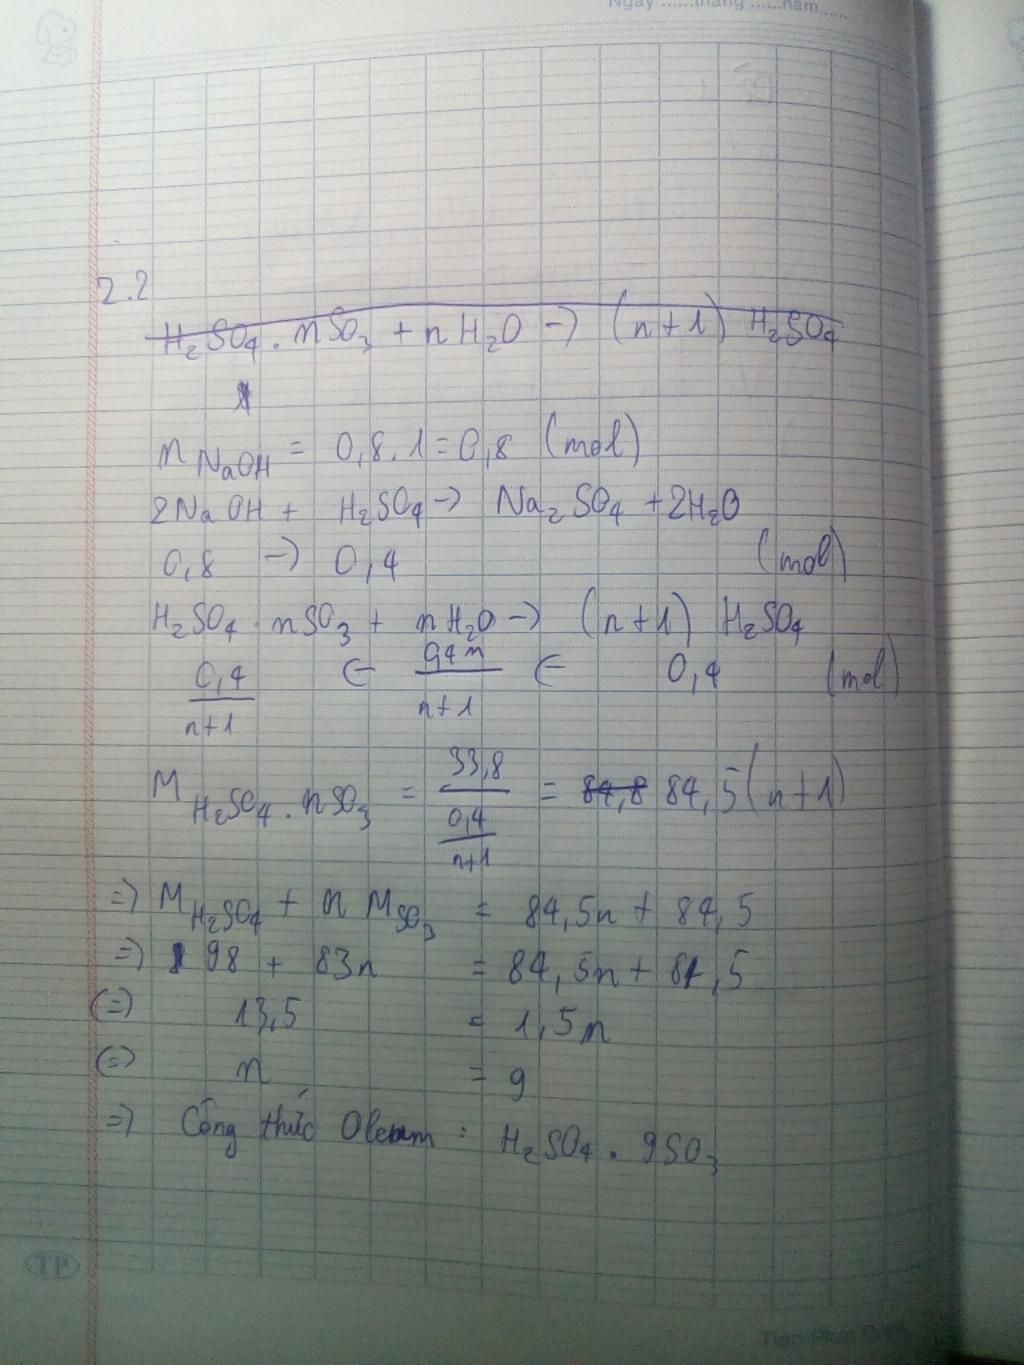 Ngày ......tháng ......năm......
2.2
H₂SO₄ . nSO₃ + n H₂O → (n+1) H₂SO₄
n NaOH = 0,8 . 1 = 0,8 (mol)
2NaOH + H₂SO₄ → Na₂SO₄ + 2H₂O
0,8 → 0,4 (mol)
H₂SO₄ . nSO₃ + nH₂O → (n+1) H₂SO₄
0,4/n+1 ← 0,4n/n+1 ← 0,4 (mol)
M H₂SO₄ . nSO₃ = 33,8/(0,4/n+1) = 84,8 84,5(n+1)
=> M H₂SO₄ + n M SO₃ = 84,5n + 84,5
=> 98 + 83n = 84,5n + 84,5
(=) 13,5 = 1,5n
(=) n = 9
=> Công thức Oleum : H₂SO₄ . 9SO₃
TP